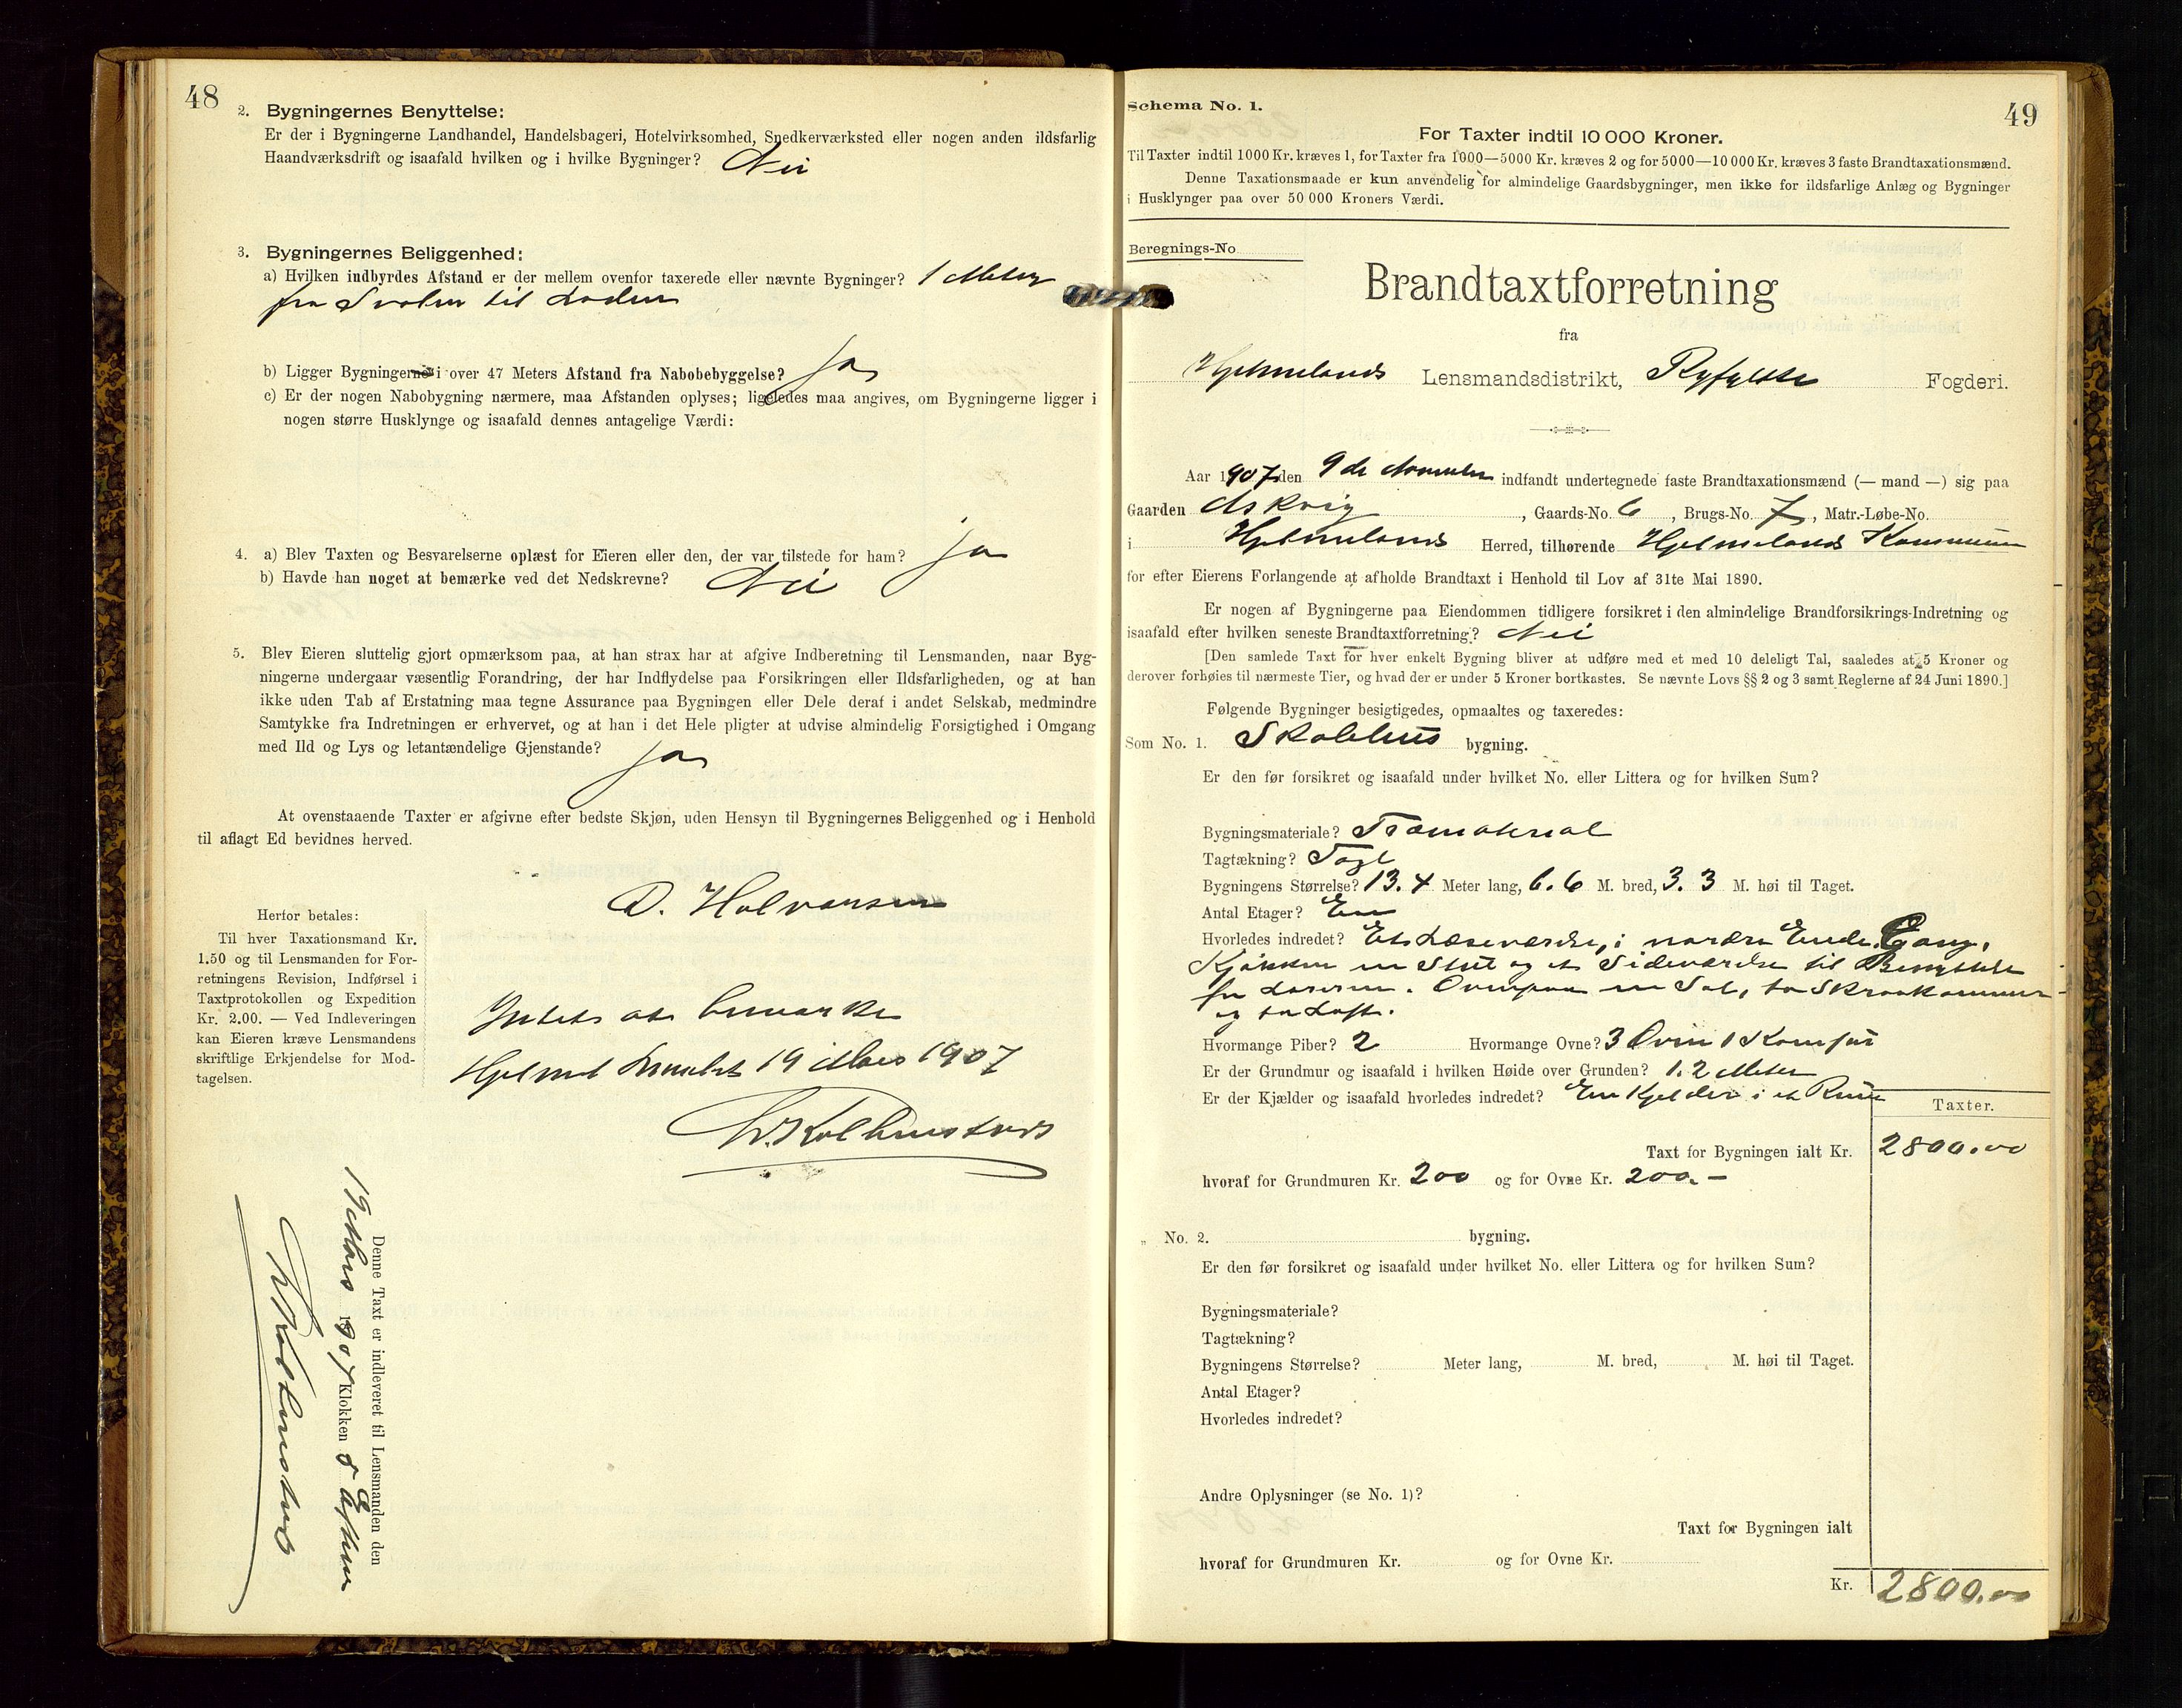 48
2. Bygningernes Benyttelse:
Er der i Bygningerne Landhandel, Handelsbageri, Hotelvirksomhed, Snedkerværksted eller nogen anden ildsfarlig
Haandværksdrift og isaafald hvilken og i hvilke Bygninger? Nei
3. Bygningernes Beliggenhed:
a) Hvilken indbyrdes Afstand er der mellem ovenfor taxerede eller nævnte Bygninger? 1 Meter
fra Svalen til Laden
b) Ligger Bygningerne i over 47 Meters Afstand fra Nabobebyggelse? Ja
c) Er der nogen Nabobygning nærmere, maa Afstanden oplyses; ligeledes maa angives, om Bygningerne ligger i
nogen større Husklynge og isaafald dennes antagelige Værdi:
4. a) Blev Taxten og Besvarelserne oplæst for Eieren eller den, der var tilstede for ham? Ja
b) Havde han noget at bemærke ved det Nedskrevne? Nei
5. Blev Eieren sluttelig gjort opmærksom paa, at han strax har at afgive Indberetning til Lensmanden, naar Byg-
ningerne undergaar væsentlig Forandring, der har Indflydelse paa Forsikringen eller Ildsfarligheden, og at han
ikke uden Tab af Erstatning maa tegne Assurance paa Bygningen eller Dele deraf i andet Selskab, medmindre
Samtykke fra Indretningen er erhvervet, og at han i det Hele pligter at udvise almindelig Forsigtighed i Omgang
med Ild og Lys og letantændelige Gjenstande? Ja
At ovenstaaende Taxter er afgivne efter bedste Skjøn, uden Hensyn til Bygningernes Beliggenhed og i Henhold
til aflagt Ed bevidnes herved.
D. Halvorsen
Herfor betales:
Til hver Taxationsmand Kr.
1.50 og til Lensmanden for For-
retningens Revision, Indførsel i
Taxtprotokollen og Expedition
Kr. 2.00. — Ved Indleveringen
kan Eieren kræve Lensmandens
skriftlige Erkjendelse for Mod-
tagelsen.
Intet at bemærke
19 Mars 1907
Denne Taxt er indleveret til Lensmanden den
19 Mars 1907 Klokken 8 Efterm
Schema No. 1.
49
For Taxter indtil 10 000 Kroner.
Til Taxter indtil 1000 Kr. kræves 1, for Taxter fra 1000—5000 Kr. kræves 2 og for 5000—10 000 Kr. kræves 3 faste Brandtaxationsmænd.
Denne Taxationsmaade er kun anvendelig for almindelige Gaardsbygninger, men ikke for ildsfarlige Anlæg og Bygninger
i Husklynger paa over 50 000 Kroners Værdi.
Beregnings-No
Brandtaxtforretning
fra
Hjelmelands Lensmandsdistrikt, Ryfylke Fogderi.
Aar 1907 den 9de indfandt undertegnede faste Brandtaxationsmænd (— mand —) sig paa
Gaarden Askvig, Gaards-No. 6, Brugs-No. 7, Matr.-Løbe-No.
i Hjelmelands Herred, tilhørende Hjelmelands Kommune
for efter Eierens Forlangende at afholde Brandtaxt i Henhold til Lov af 31te Mai 1890.
Er nogen af Bygningerne paa Eiendommen tidligere forsikret i den almindelige Brandforsikrings-Indretning og
isaafald efter hvilken seneste Brandtaxtforretning? Nei
[Den samlede Taxt for hver enkelt Bygning bliver at udføre med et med 10 deleligt Tal, saaledes at 5 Kroner og
derover forhøies til nærmeste Tier, og hvad der er under 5 Kroner bortkastes. Se nævnte Lovs §§ 2 og 3 samt Reglerne af 24 Juni 1890.]
Følgende Bygninger besigtigedes, opmaaltes og taxeredes:
Som No. 1. Skolehus bygning.
Er den før forsikret og isaafald under hvilket No. eller Littera og for hvilken Sum?
Bygningsmateriale? Træmaterial
Tagtækning? Tagl
Bygningens Størrelse? 13.4 Meter lang, 6.6 M. bred, 3.3 M. høi til Taget.
Antal Etager? En
Hvorledes indredet? Et Læseværelse, i nordre Ende. Gang,
Kjøkken en Stue og et Sideværelse til Benyttelse
for Læreren. Ovenpaa en Sal, to Skraakammer
og to Loft.
Hvormange Piber? 2 Hvormange Ovne? 3 Ovne 1 Komfur
Er der Grundmur og isaafald i hvilken Høide over Grunden? 1.2 Meter
Er der Kjælder og isaafald hvorledes indredet? En Kjelder i et Rum
Taxter.
Taxt for Bygningen ialt Kr. 2800.00
hvoraf for Grundmuren Kr. 200 og for Ovne Kr. 200.—
„ No. 2. bygning.
Er den før forsikret og isaafald under hvilket No. eller Littera og for hvilken Sum?
Bygningsmateriale?
Tagtækning?
Bygningens Størrelse? Meter lang, M. bred, M. høi til Taget.
Antal Etager?
Hvorledes indredet?
Andre Oplysninger (se No. 1)?
Taxt for Bygningen ialt
hvoraf for Grundmuren Kr. og for Ovne Kr.
Kr. 2800.00